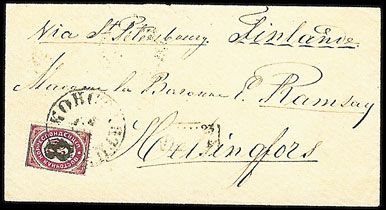 Via St Petersbourg. Finlande.
Madame la Baronne E. Ramsay
Helsingfors